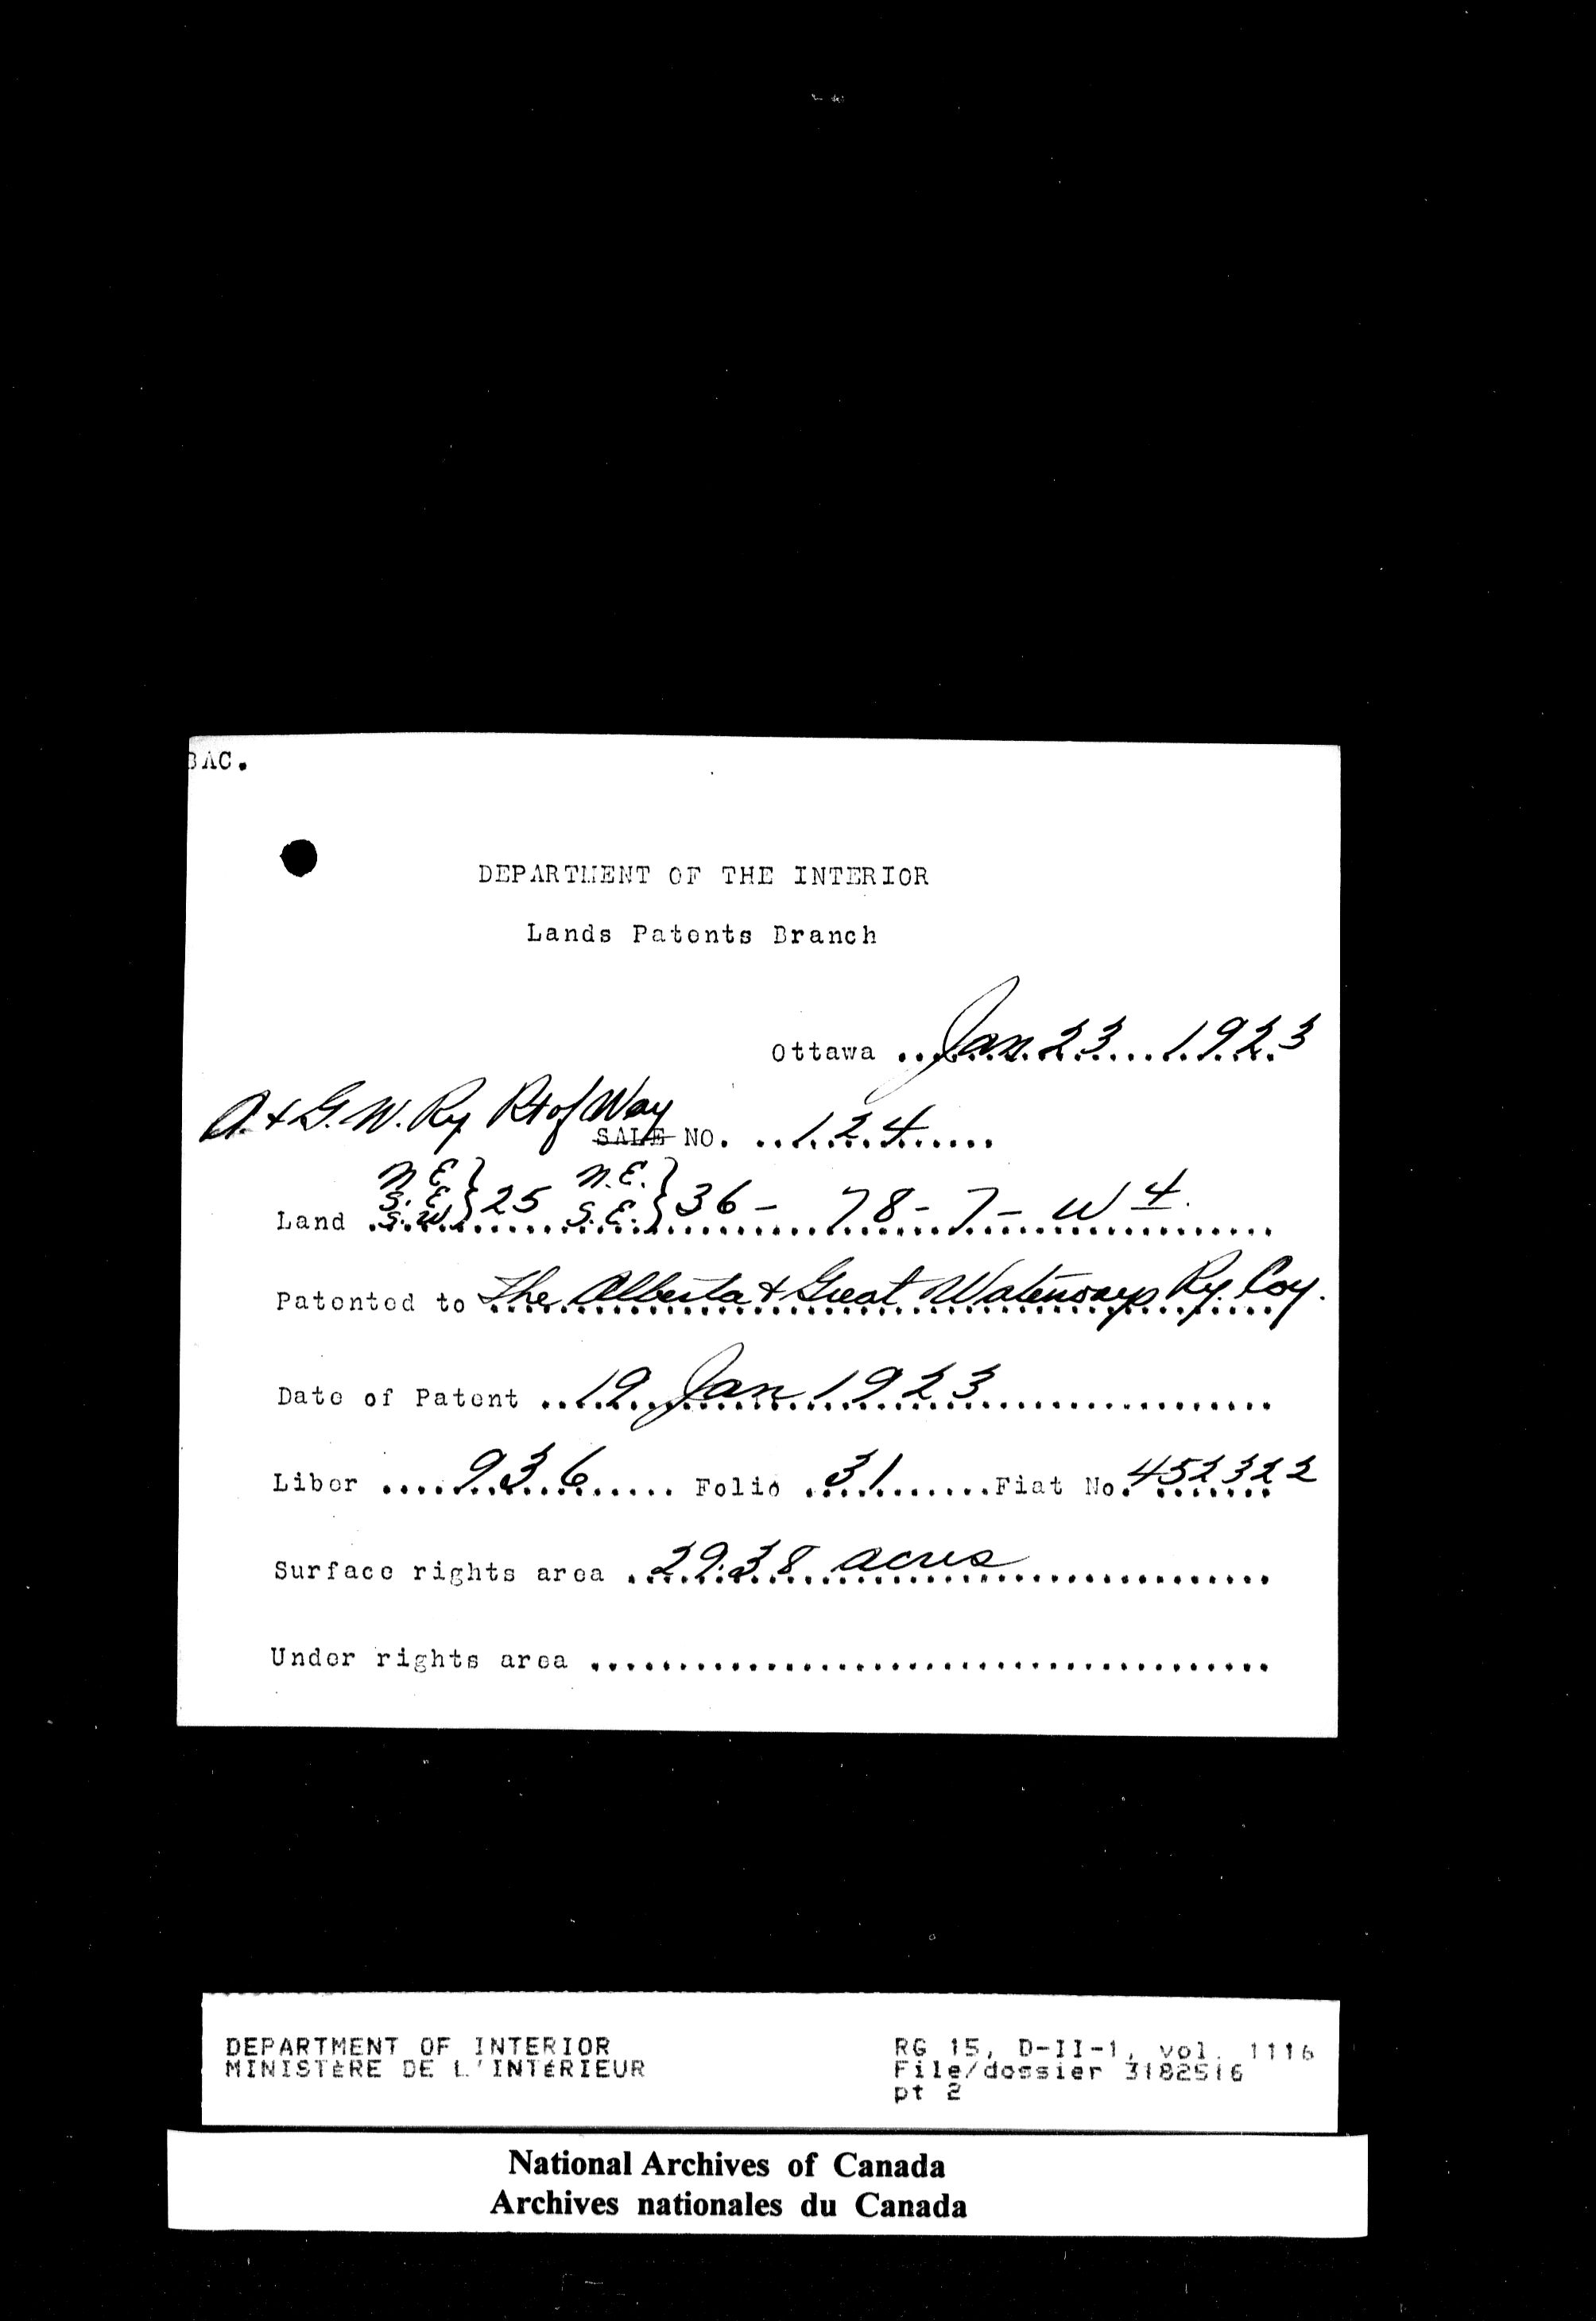 BAC.
DEPARTMENT OF THE INTERIOR
Lands Patents Branch
Ottawa ..Jan. 23 1923
A. & G. W. Ry Rt of Way
SALE NO. ..124......
N.E.
S.E. } 25 N.E. } 36 - 78 - 7 - W 4.
Land S.W. S.E.
Patented to The Alberta & Great Waterways Ry. Coy.
Date of Patent ..19 Jan 1923
Liber ....936...... Folio .31..........Fiat No. 452322
Surface rights area .29.38 acres
Under rights area ........................................
DEPARTMENT OF INTERIOR RG 15, D-II-1, vol. 1116
MINISTÈRE DE L'INTÉRIEUR File/dossier 3182516
pt 2
National Archives of Canada
Archives nationales du Canada